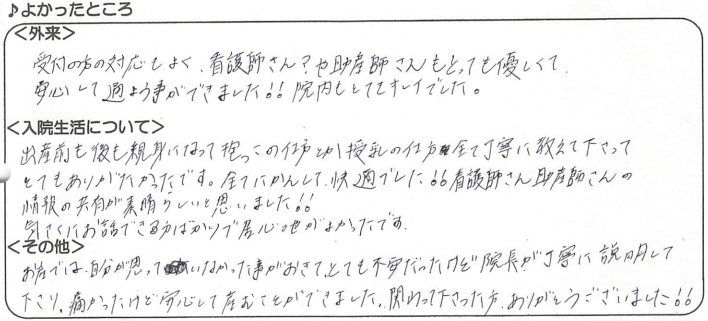 ♪よかったところ
<外来>
受付の方の対応もよく、看護師さん?や助産師さんもとっても優しくて、
安心して通よう事ができました!! 院内もとてもキレイでした。
<入院生活について>
出産前も後も親身になって抱っこの仕方とか授乳の仕方 全て丁寧に教えて下さって
とてもありがたかったです。全てにかんして、快適でした!! 看護師さん助産師さんの
情報の共有が素晴らしいと思いました!!
気さくにお話できる方ばかりで居心地がよかったです。
<その他>
お産では、自分が思って いなかった事がおきて、とても不安だったけど院長が丁寧に説明して
下さり、痛かったけど安心して産むことができました。関わって下さった方、ありがとうございました!!